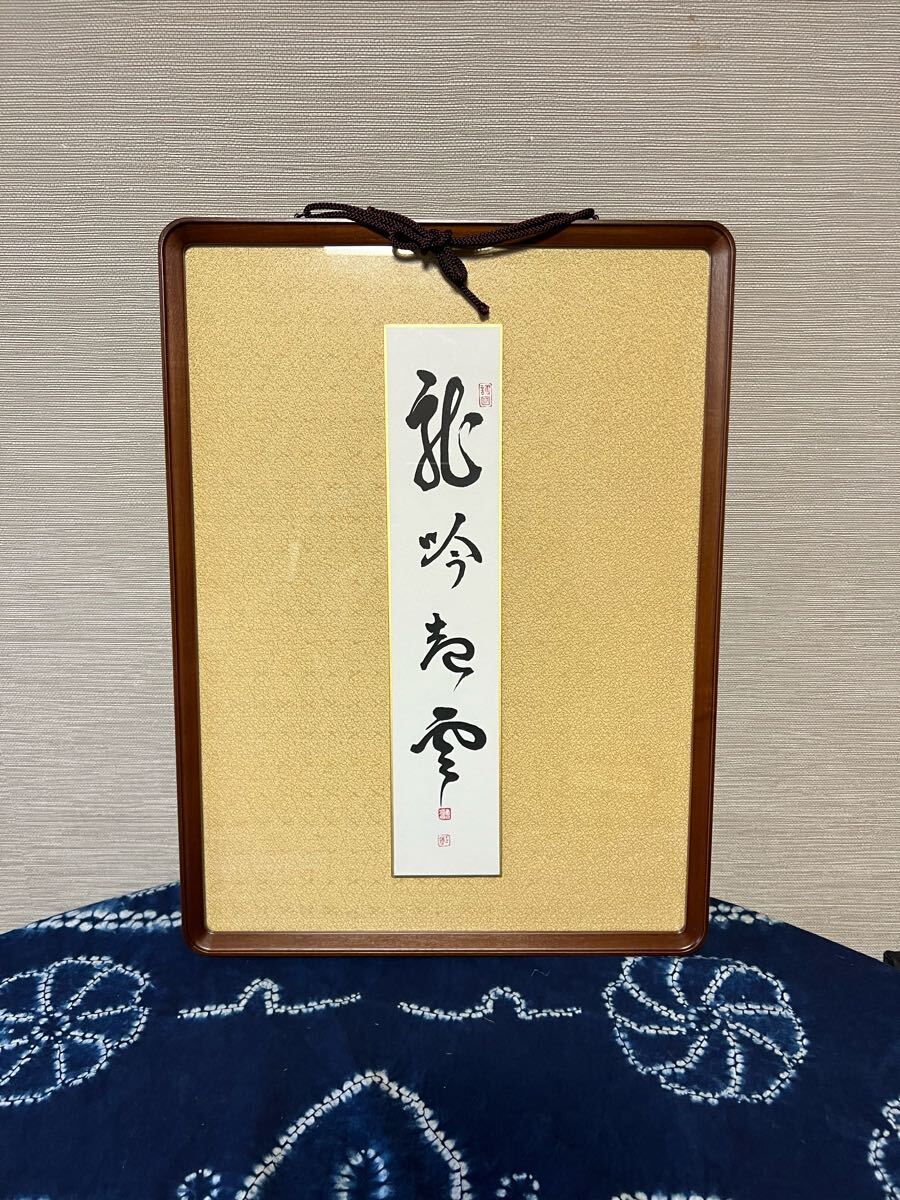 龍吟起雲